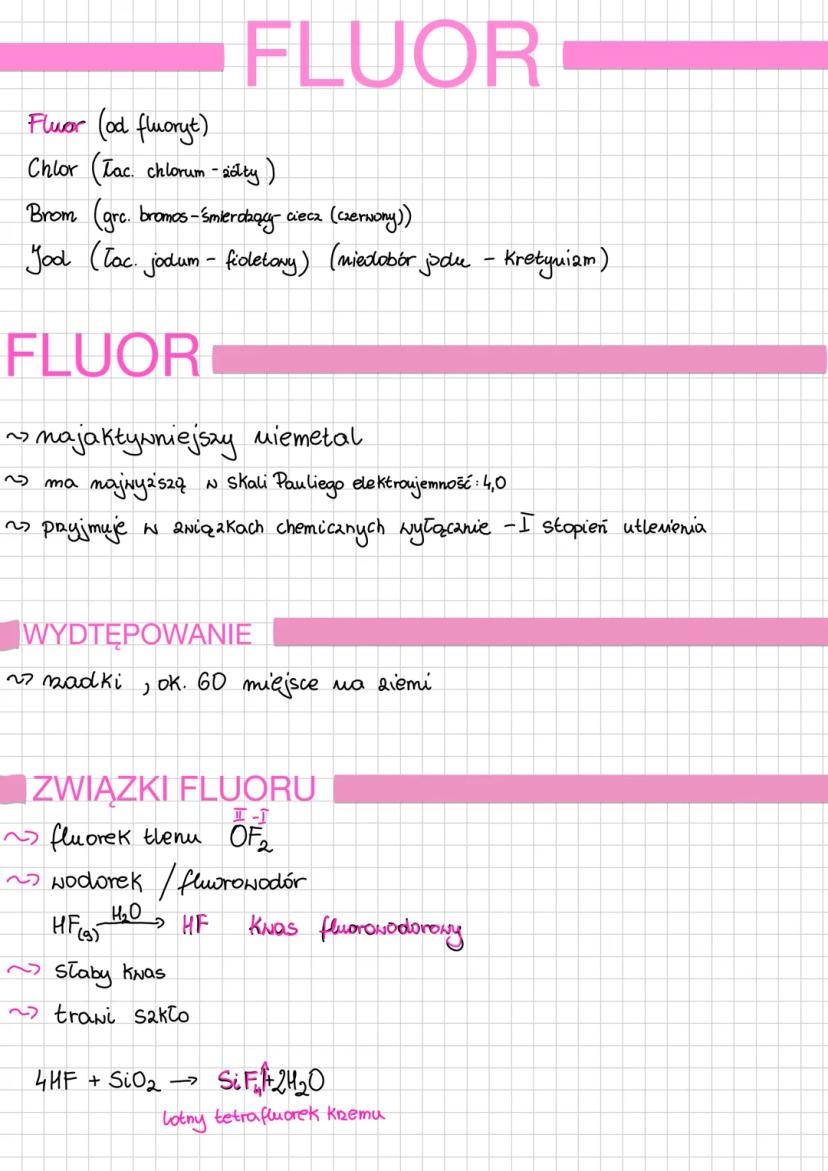 FLUOR
Fluor (od fluoryt)
Chlor (łac. chlorum - żółty)
Brom (grc. bromos-śmierdzący- ciecz (czerwony))
Jod (łac. jodum - fioletowy) (niedobór jodu - kretynizm)
FLUOR
~> najaktywniejszy niemetal
~> ma najwyższą w skali Pauliego elektroujemność: 4,0
~> przyjmuje w związkach chemicznych wyłącznie -I stopień utlenienia
WYDTĘPOWANIE
~> rzadki, ok. 60 miejsce na ziemi
ZWIĄZKI FLUORU
II -I
~> fluorek tlenu OF₂
~> wodorek / fluorowodór
HF(g) —H₂O→ HF kwas fluorowodorowy
~> słaby kwas
~> trawi szkło
4HF + SiO₂ → SiF₄↑+2H₂O
lotny tetrafluorek krzemu